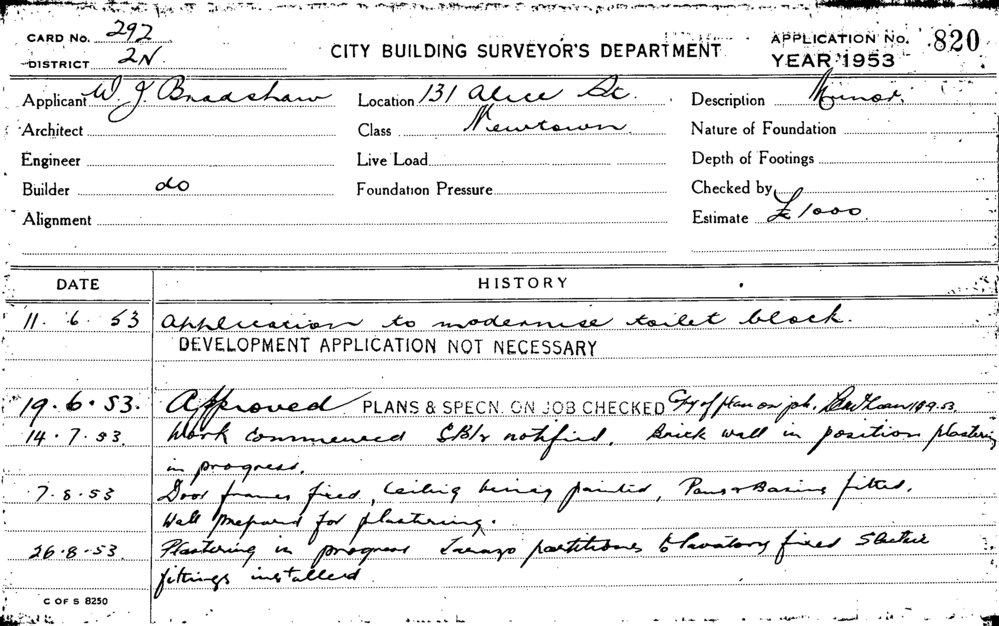 CARD No. 292
DISTRICT 2N
CITY BUILDING SURVEYOR'S DEPARTMENT
APPLICATION No. 820
YEAR 1953
Applicant W J Bradshaw Location 131 Alice St. Description Minor.
Architect Class Newtown Nature of Foundation
Engineer Live Load Depth of Footings
Builder do Foundation Pressure Checked by
Alignment Estimate £1000
DATE HISTORY
11. 6. 53 Application to modernise toilet block.
DEVELOPMENT APPLICATION NOT NECESSARY
19.6.53. Approved PLANS & SPECN. ON JOB CHECKED Copy of plan on job.
14.7.53. Work commenced notified. Brick wall in position plastering
in progress.
7.8.53 Door frames fixed, Ceiling being painted, Pans & Basins fitted.
Wall prepared for plastering.
26.8.53 Plastering in progress partitions to lavatory fixed
fittings installed
C OF S 8250